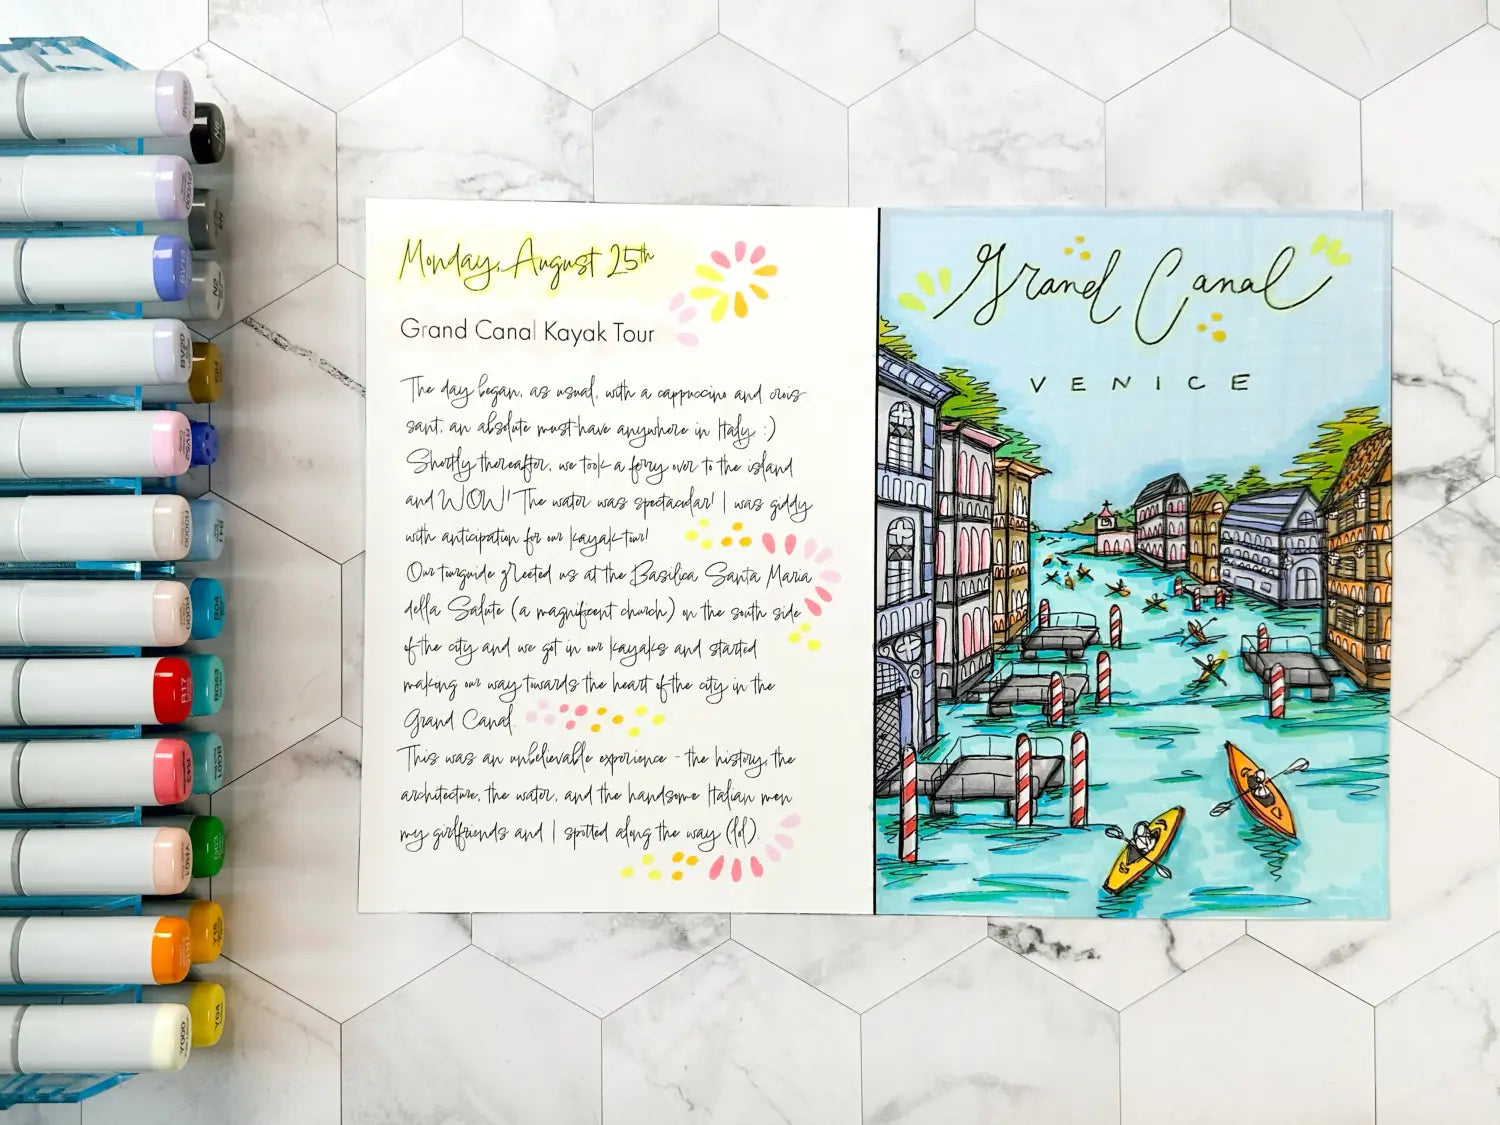 Monday, August 25th
Grand Canal Kayak Tour
The day began, as usual, with a cappuccino and crois
sant, an absolute must-have anywhere in Italy :)
Shortly thereafter, we took a ferry over to the island
and WOW! The water was spectacular! I was giddy
with anticipation for our kayak tour!
Our tourguide greeted us at the Basilica Santa Maria
della Salute (a magnificent church) on the south side
of the city and we got in our kayaks and started
making our way towards the heart of the city in the
Grand Canal.
This was an unbelievable experience - the history, the
architecture, the water, and the handsome Italian men
my girlfriends and I spotted along the way (lol).
Grand Canal
VENICE
RV52
R0000
R000
R43
YR01
Y000
N2
B41
BG01
Y18
Y04